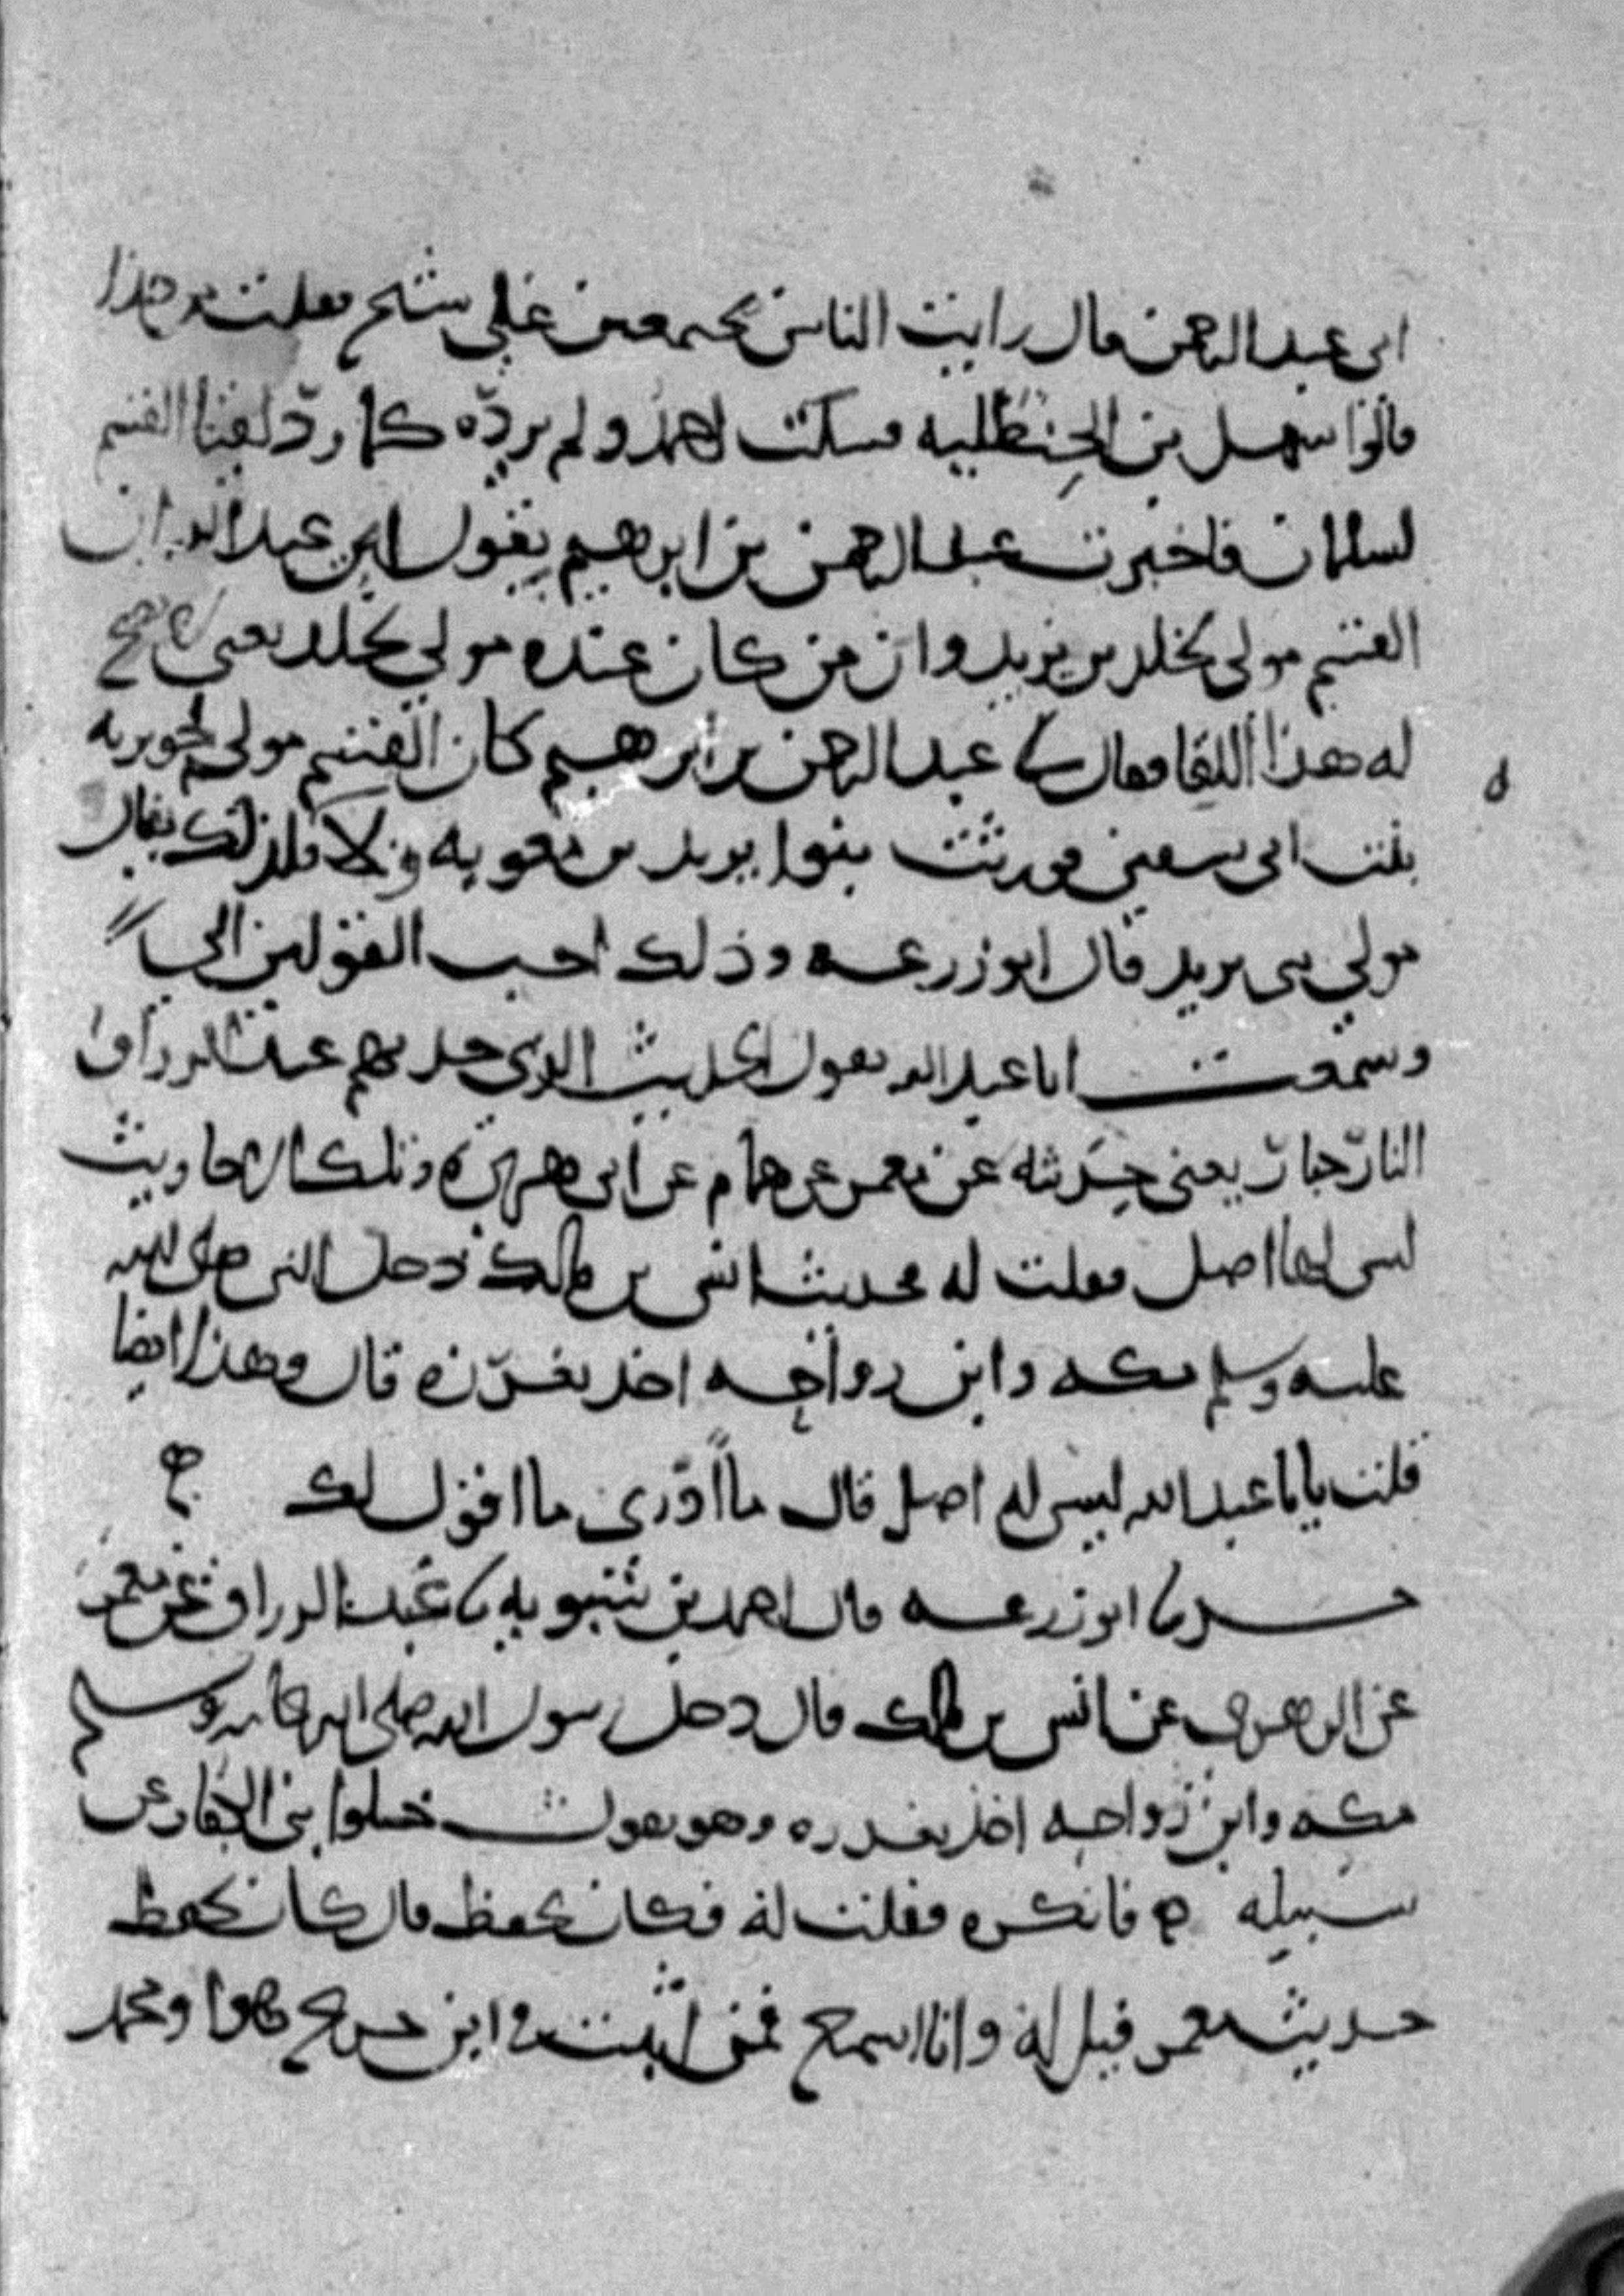 ابى عبد الرحمن قال رايت الناس مجتمعين على شيخ فقلت من هذا
قالوا سهل بن الحنظليه فسكت احمد ولم يردّه كما ردّ لقينا القسم
لسلمان فاخبرت عبد الرحمن بن ابرهيم بقول ابى عبد الله ان
القسم مولى لخلد بن يزيد وان من كان عنده مولى لخلد يعنى يصح
له هذا اللقا فقال لى عبد الرحمن بن ابرهيم كان القسم مولى لجويريه
بنت ابى سفين فورثت بنوا يزيد بن معويه ولاه فلذلك يقال
مولى بنى يزيد قال ابو زرعه وذلك احب القولين الى
وسمعت ابا عبد الله يقول الحديث الذى حدثهم عبد الرزاق
النار جبار يعنى حدثه عن معمر عن همام عن ابى هريره وتلك الاحاديث
ليس لها اصل فقلت له فحديث انس بن ملك دخل النبى صلى الله
عليه وسلم مكه وابن رواحه اخذ بغرزه قال وهذا ايضا
قلت يا ابا عبد الله ليس له اصل قال ما ادرى ما اقول لك
حدثنا ابو زرعه قال احمد بن شبويه نا عبد الرزاق عن معمر
عن الزهرى عن انس بن ملك قال دخل رسول الله صلى الله عليه وسلم
مكه وابن رواحه اخذ بغرزه وهو يقول خلوا بنى الكفار عن
سبيله ه فانكره فقلت له فكان يحفظ قال كان يحفظ
حديث معمر قيل له وانا اسمع فمن اثبت فى ابن جريج هو او محمد